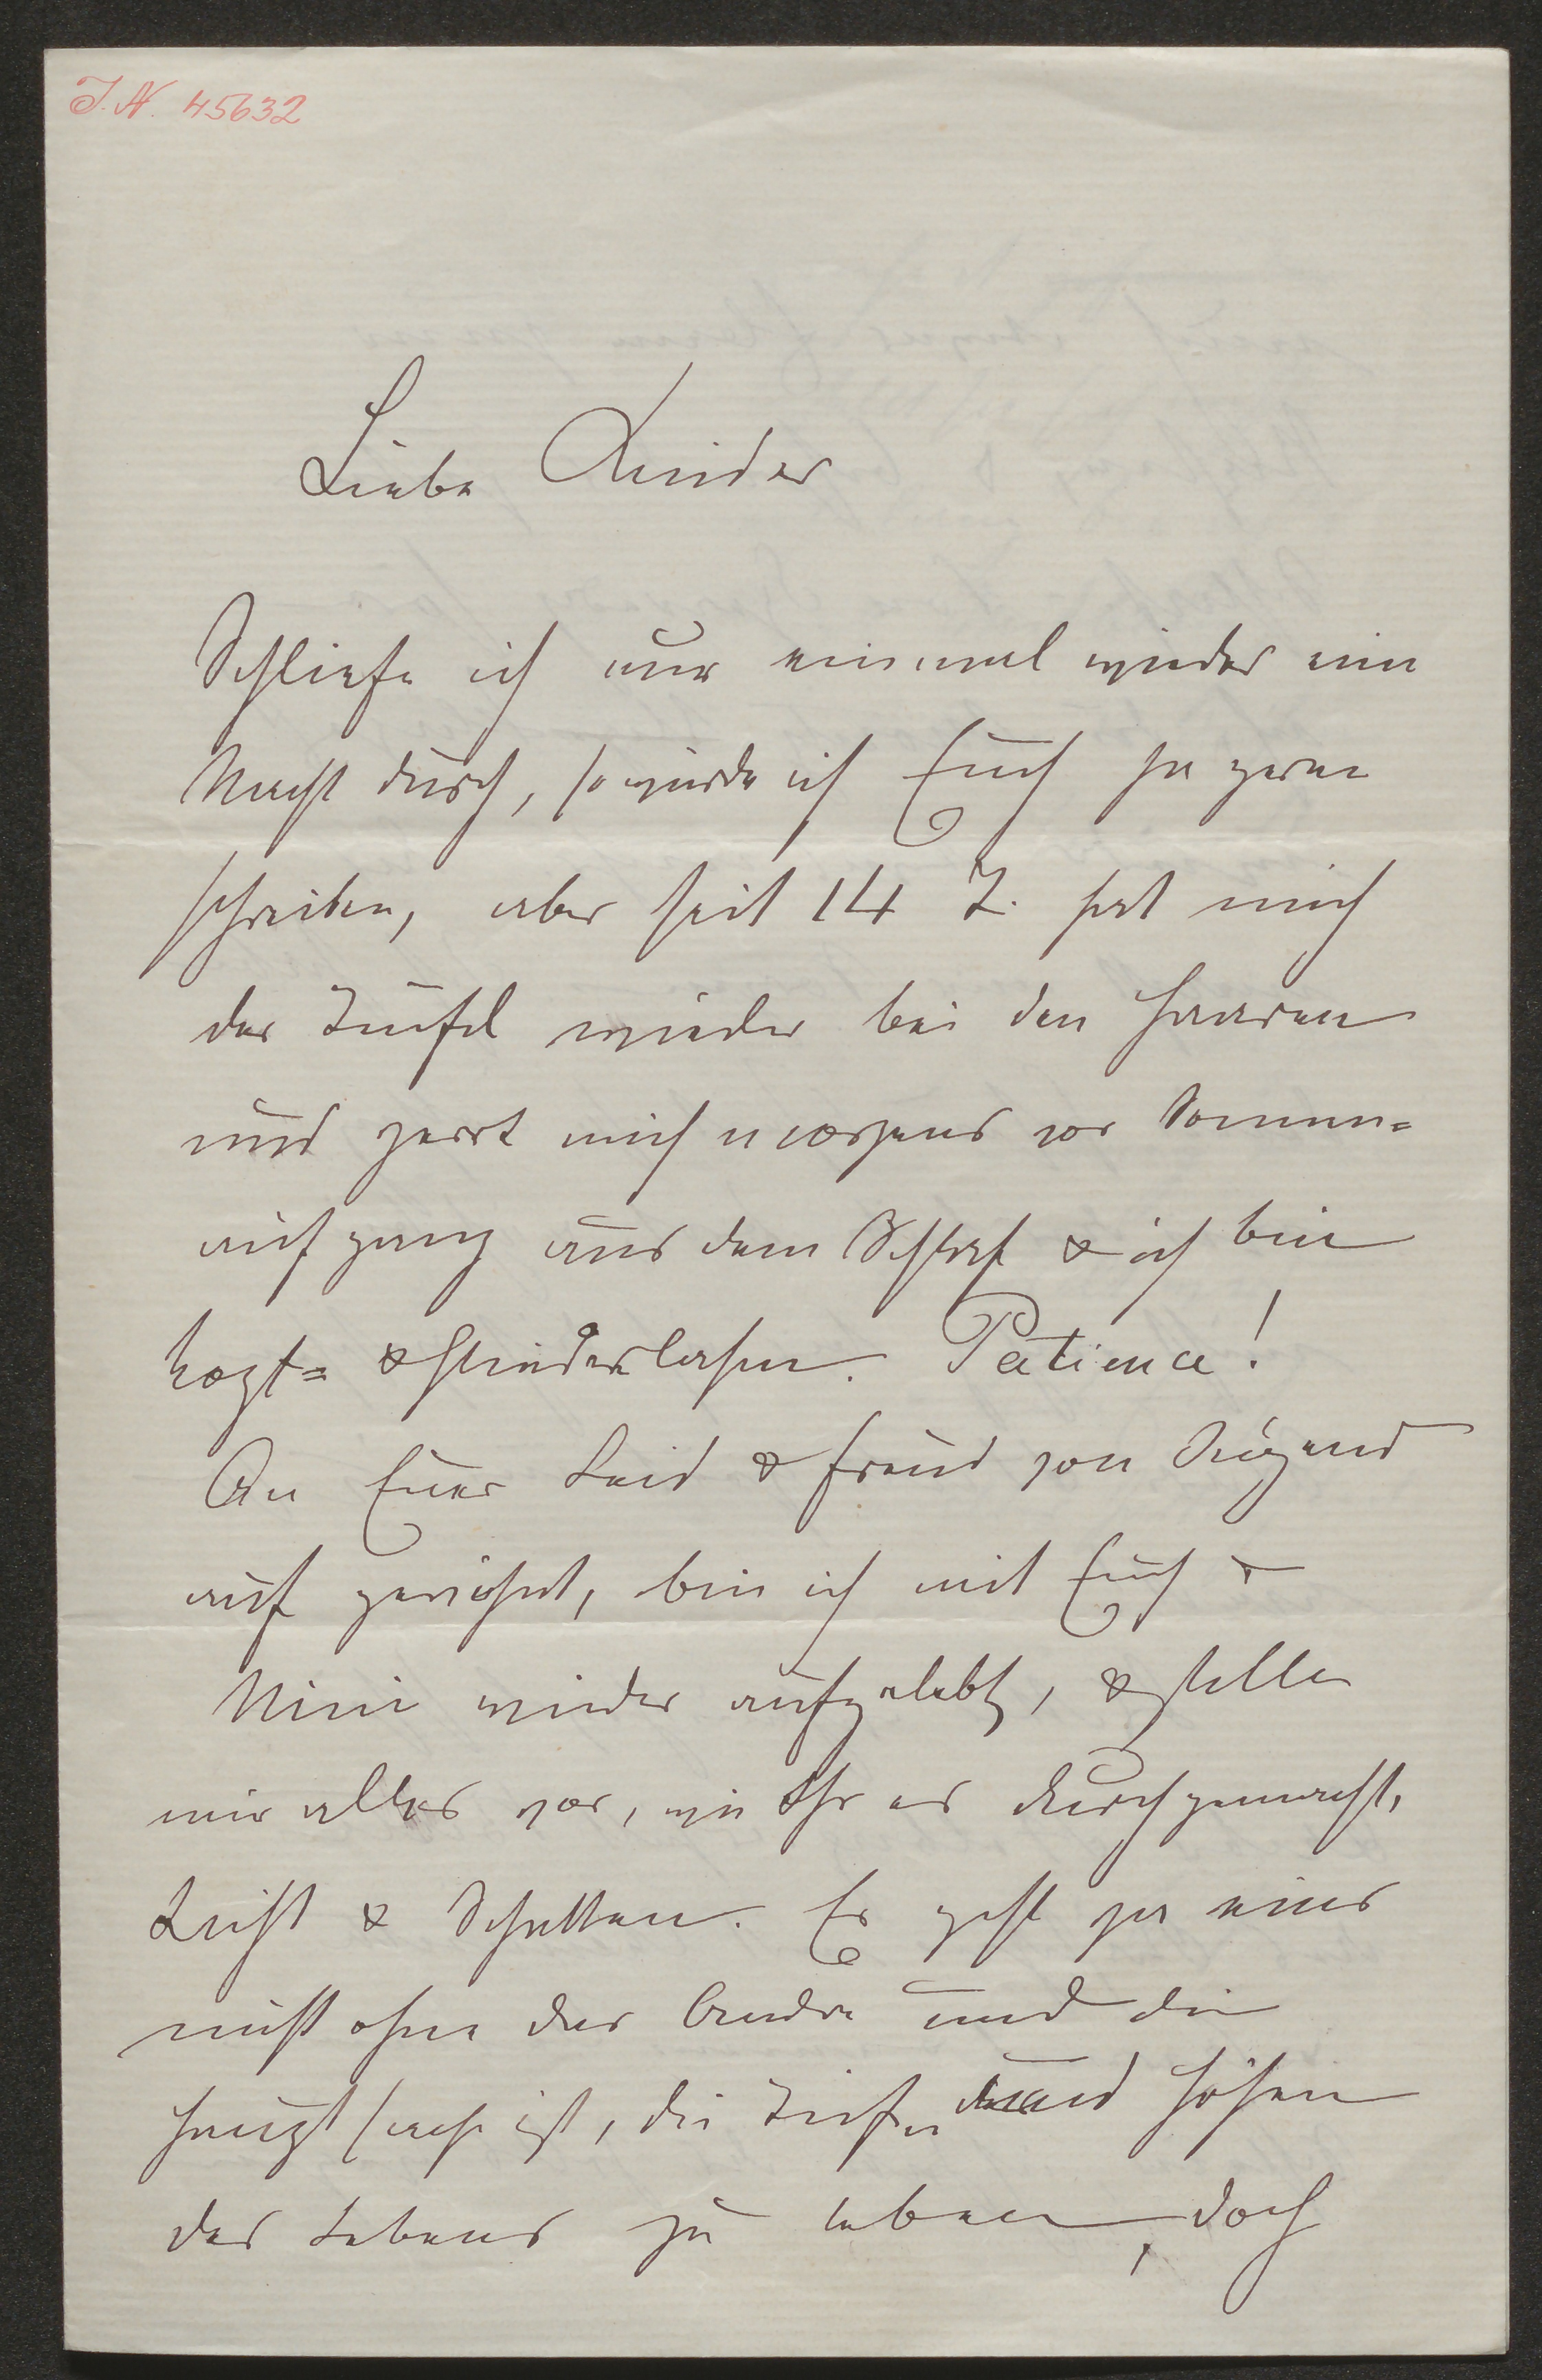 I.N. 45632
Liebe Kinder
Schliefe ich nur einmal wieder eine
Nacht durch, so würde ich Euch ja gerne
schreiben, aber seit 14 T. hat mich
der Teufel wieder bei den Haaren
und zerrt mich morgens vor Sonnen=
aufgang aus dem Schlaf & ich bin
kopf= & hinderlassen. Patience!
An Euer Leid & Freud von Jugend
auf gewöhnt, bin ich mit Euch &
Mini wieder aufgelebt, & stelle
mir alles vor, wie Ihr es durchgemacht,
Licht & Schatten. Es geht ja eins
nicht ohne das Andre und die
Hauptsache ist, die Tiefen und Höhen
des Lebens zu leben, doch